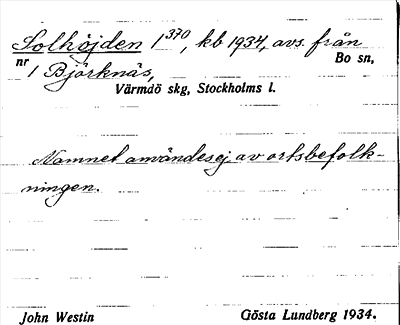 Solhöjden 1³⁷⁰, kb 1934, avs. från
nr 1 Björknäs, Bo sn,
Värmdö skg, Stockholms l.
Namnet användes ej av ortsbefolk-
ningen.
John Westin Gösta Lundberg 1934.